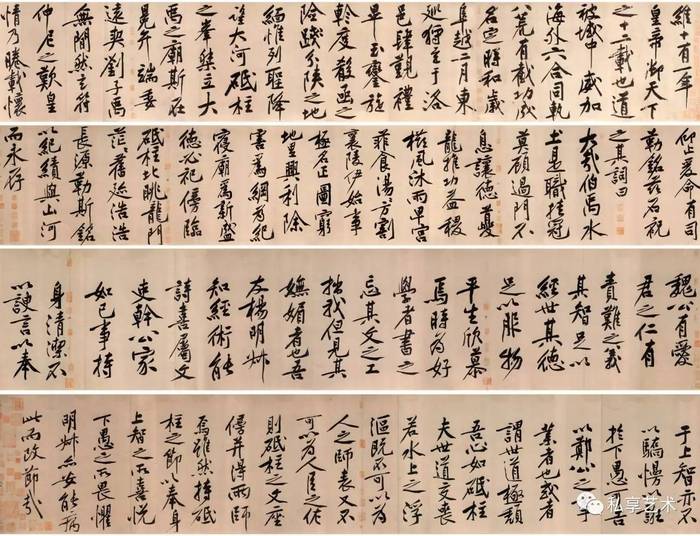 維十有一年
皇帝御天下
之十二載也道
被域中威加
海外六合同軌
八荒有截功成
名定時和歲
阜越二月東
巡狩至于洛
邑肆覲禮
畢玉鑾旋
軫度殽函之
險踐分陝之地
緬惟列聖降
望大河砥柱
之峯桀立大
禹之廟斯在
冕弁端委
遠契劉子禹
無間然玄符
仲尼之歎皇
情乃睠載懷
仰止爰命有司
勒銘茲石祝
之其詞曰
大哉伯禹水
土是職挂冠
莫顧過門不
息讓德夔
龍推功益稷
櫛風沐雨卑宮
菲食湯湯方割
襄陵伊始事
極名正圖窮
地里興利除
害爲綱爲紀
寢廟爲新盛
德必祀傍臨
砥柱北眺龍門
茫茫舊迹浩浩
長源勒斯銘
以紀績與山河
而永存
魏公有愛
君之仁有
責難之義
其智足以
經世其德
足以服物
平生欣慕
焉時爲好
學者書之
忘其文之工
拙我但見其
嫵媚者也吾
友楊明叔
知經術能
詩喜屬文
吏幹公家
如己事持
身清潔不
以諛言以奉
于上智亦不
以驕慢以誑
於下愚可告
以鄭公之事
業者也或者
謂世道極頹
吾心如砥柱
夫世道交喪
若水上之浮
漚既不可以爲
人之師表又不
可以爲人臣之佐
則砥柱之文座
傍并得兩師
焉雖然持砥
柱之節以奉身
上智之所喜悅
下愚之所畏懼
明叔亦安能病
此而改節哉
私享艺术